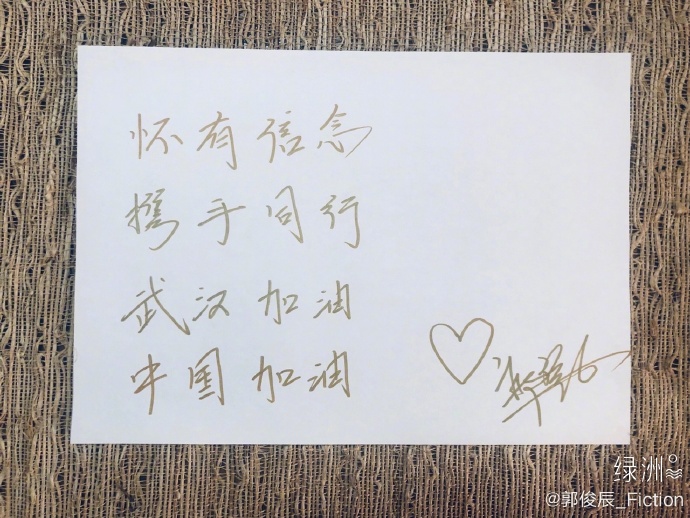 怀有信念
携手同行
武汉加油
中国加油
绿洲
@郭俊辰_Fiction